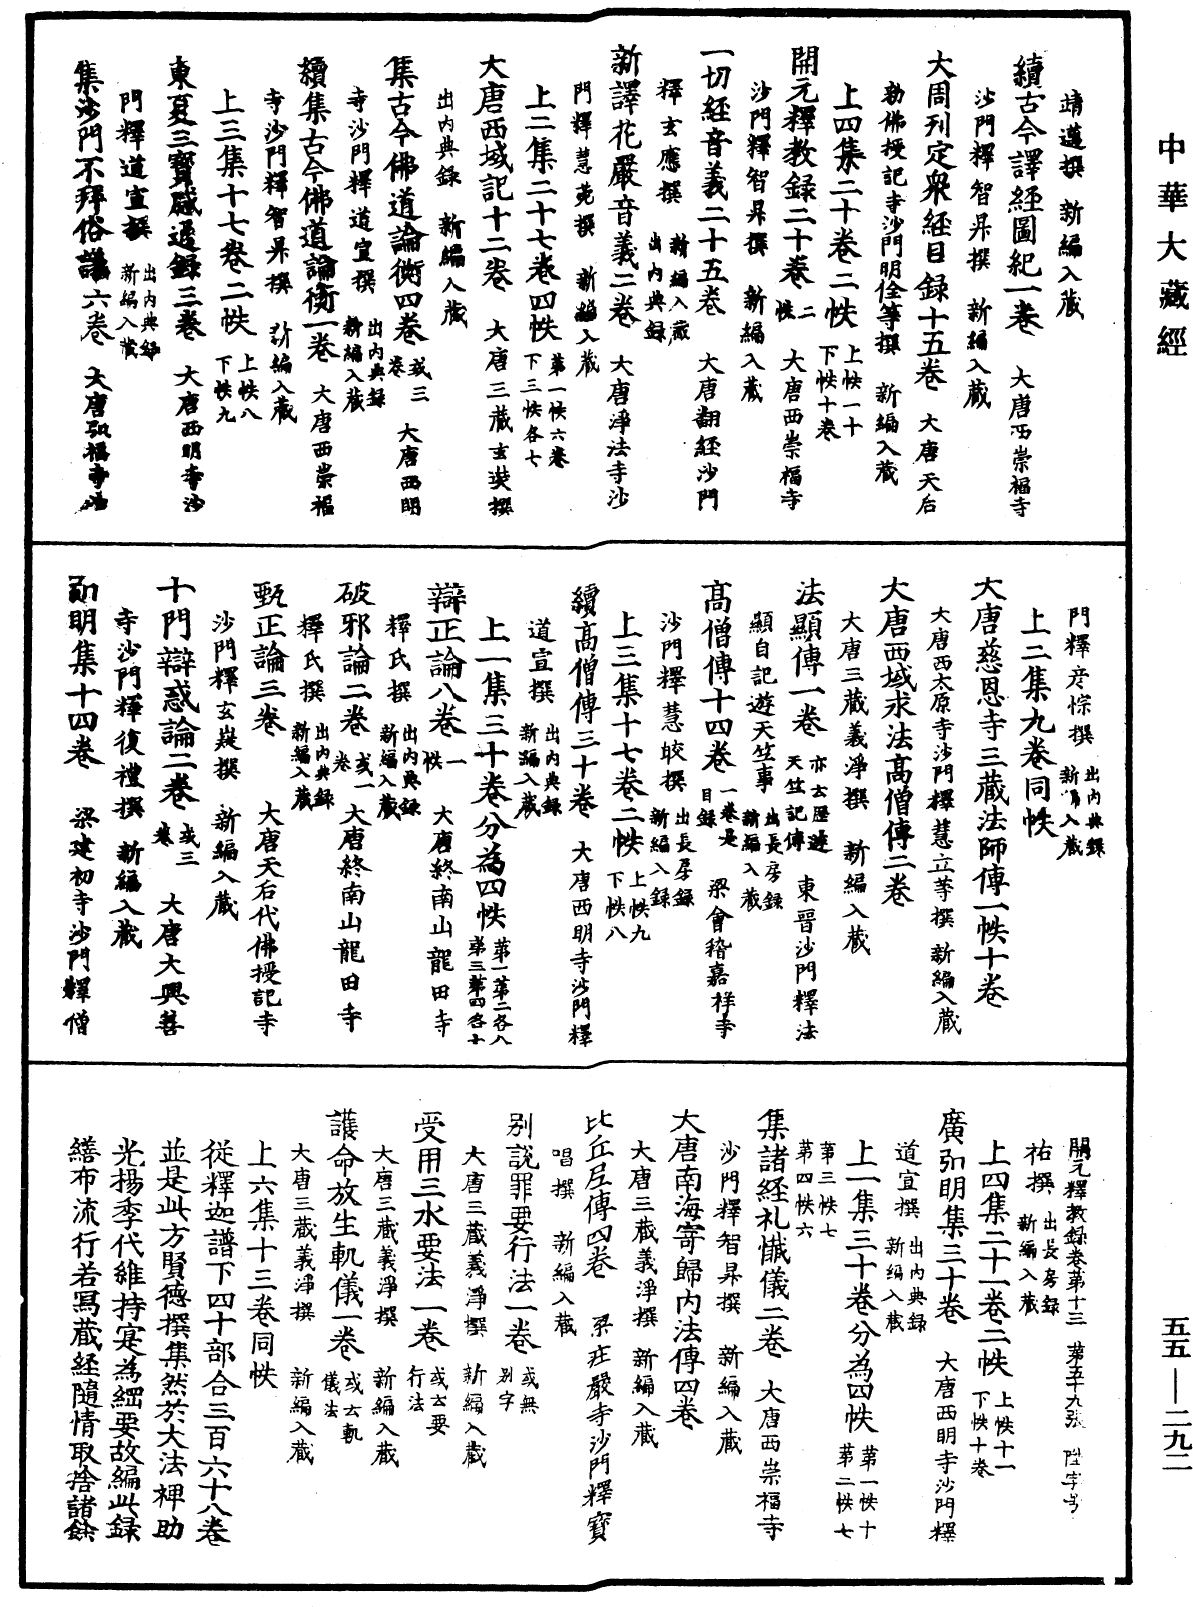 中華大藏經
靖邁撰 新編入藏
續古今譯經圖紀一卷 大唐西崇福寺
沙門釋智昇撰 新編入藏
大周刊定衆經目録十五卷 大唐天后
勑佛授記寺沙門明佺等撰 新編入藏
上四集二十卷二帙 上帙一十 下帙十卷
開元釋教録二十卷 二帙 大唐西崇福寺
沙門釋智昇撰 新編入藏
一切經音義二十五卷 大唐翻經沙門
釋玄應撰 出内典録 新編入藏
新譯花嚴音義二卷 大唐淨法寺沙
門釋慧苑撰 新編入藏
上二集二十七卷四帙 第一帙六卷 下三帙各七
大唐西域記十二卷 大唐三藏玄奘撰
出内典録 新編入藏
集古今佛道論衡四卷 或三卷 大唐西明
寺沙門釋道宣撰 出内典録 新編入藏
續集古今佛道論衡一卷 大唐西崇福
寺沙門釋智昇撰 新編入藏
上三集十七卷二帙 上帙八 下帙九
東夏三寶感通録三卷 大唐西明寺沙
門釋道宣撰 出内典録 新編入藏
集沙門不拜俗議六卷 大唐弘福寺沙
門釋彦悰撰 出内典録 新編入藏
上二集九卷同帙
大唐慈恩寺三藏法師傳一帙十卷
大唐西太原寺沙門釋慧立等撰 新編入藏
大唐西域求法髙僧傳二卷
大唐三藏義淨撰 新編入藏
法顯傳一卷 亦云歷遊天竺記傳 東晉沙門釋法
顯自記遊天竺事 出長房録 新編入藏
髙僧傳十四卷 一卷是目録 梁會稽嘉祥寺
沙門釋慧皎撰 出長房録 新編入録
上三集十七卷二帙 上帙九 下帙八
續髙僧傳三十卷 大唐西明寺沙門釋
道宣撰 出内典録 新編入藏
上一集三十卷分為四帙 第一第二各八 第三第四各十
辯正論八卷 一帙 大唐終南山龍田寺
釋氏撰 出内典録 新編入藏
破邪論二卷 或一卷 大唐終南山龍田寺
釋氏撰 出内典録 新編入藏
甄正論三卷 大唐天后代佛授記寺
沙門釋玄嶷撰 新編入藏
十門辯惑論二卷 或三卷 大唐大興善
寺沙門釋復禮撰 新編入藏
弘明集十四卷 梁建初寺沙門釋僧
開元釋教録卷第十三 第五十九張 陞字号
祐撰 出長房録 新編入藏
上四集二十一卷二帙 上帙十一 下帙十卷
廣弘明集三十卷 大唐西明寺沙門釋
道宣撰 出内典録 新編入藏
上一集三十卷分為四帙 第一帙十 第二帙七
第三帙七 第四帙六
集諸經礼懺儀二卷 大唐西崇福寺
沙門釋智昇撰 新編入藏
大唐南海寄歸内法傳四卷
大唐三藏義淨撰 新編入藏
比丘尼傳四卷 梁莊嚴寺沙門釋寶
唱撰 新編入藏
别説罪要行法一卷 或無别字
大唐三藏義淨撰 新編入藏
受用三水要法一卷 或云要行法
大唐三藏義淨撰 新編入藏
護命放生軌儀一卷 或云軌儀法
大唐三藏義淨撰 新編入藏
上六集十三卷同帙
從釋迦譜下四十部合三百六十八卷
並是此方賢德撰集然於大法裨助
光揚季代維持寔為綱要故編此録
繕布流行若寫藏經隨情取捨諸餘
五五—二九二